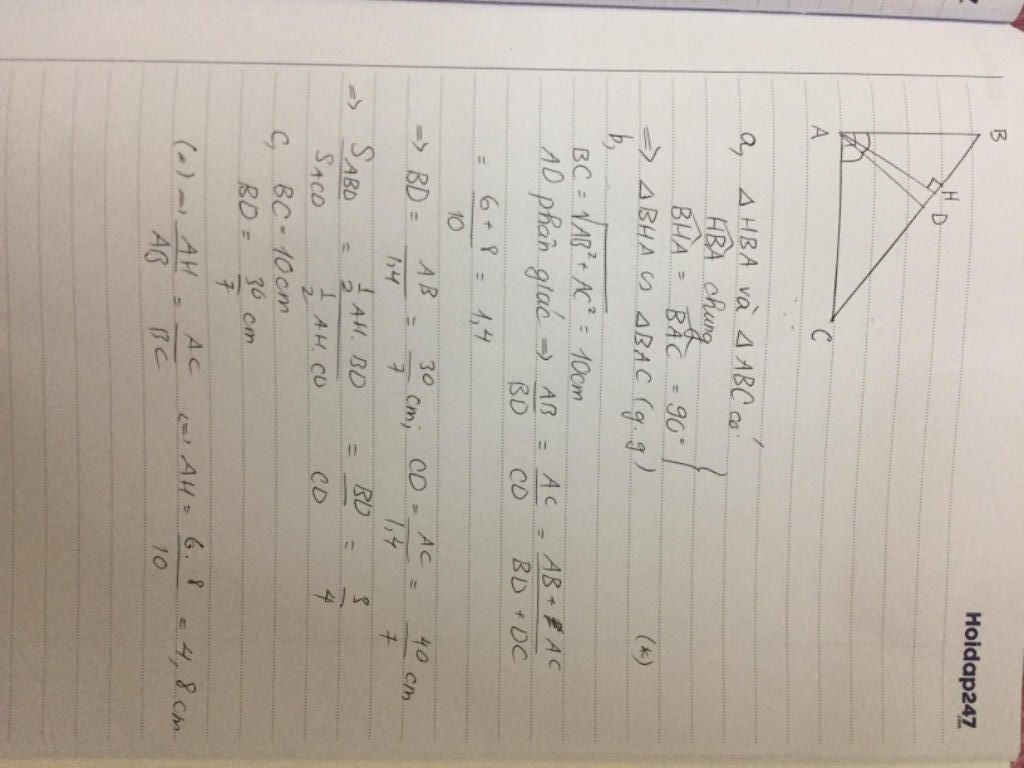 Hoidap247
B
H
D
A
C
a, Δ HBA và Δ ABC có:
HBA chung
BHA = BAC = 90°
=> Δ BHA ∽ Δ BAC (g.g) (*)
b,
BC = √AB² + AC² = 10cm
AD phân giác => AB/BD = AC/CD = AB + AC/BD + DC
= 6 + 8/10 = 1,4
=> BD = AB/1,4 = 30/7 cm; CD = AC/1,4 = 40/7 cm
=> SABD/SACD = 1/2 AH. BD/1/2 AH. CD = BD/CD = 3/4
C, BC = 10cm
BD = 30/7 cm
(*) => AH/AB = AC/BC <=> AH = 6. 8/10 = 4,8 cm